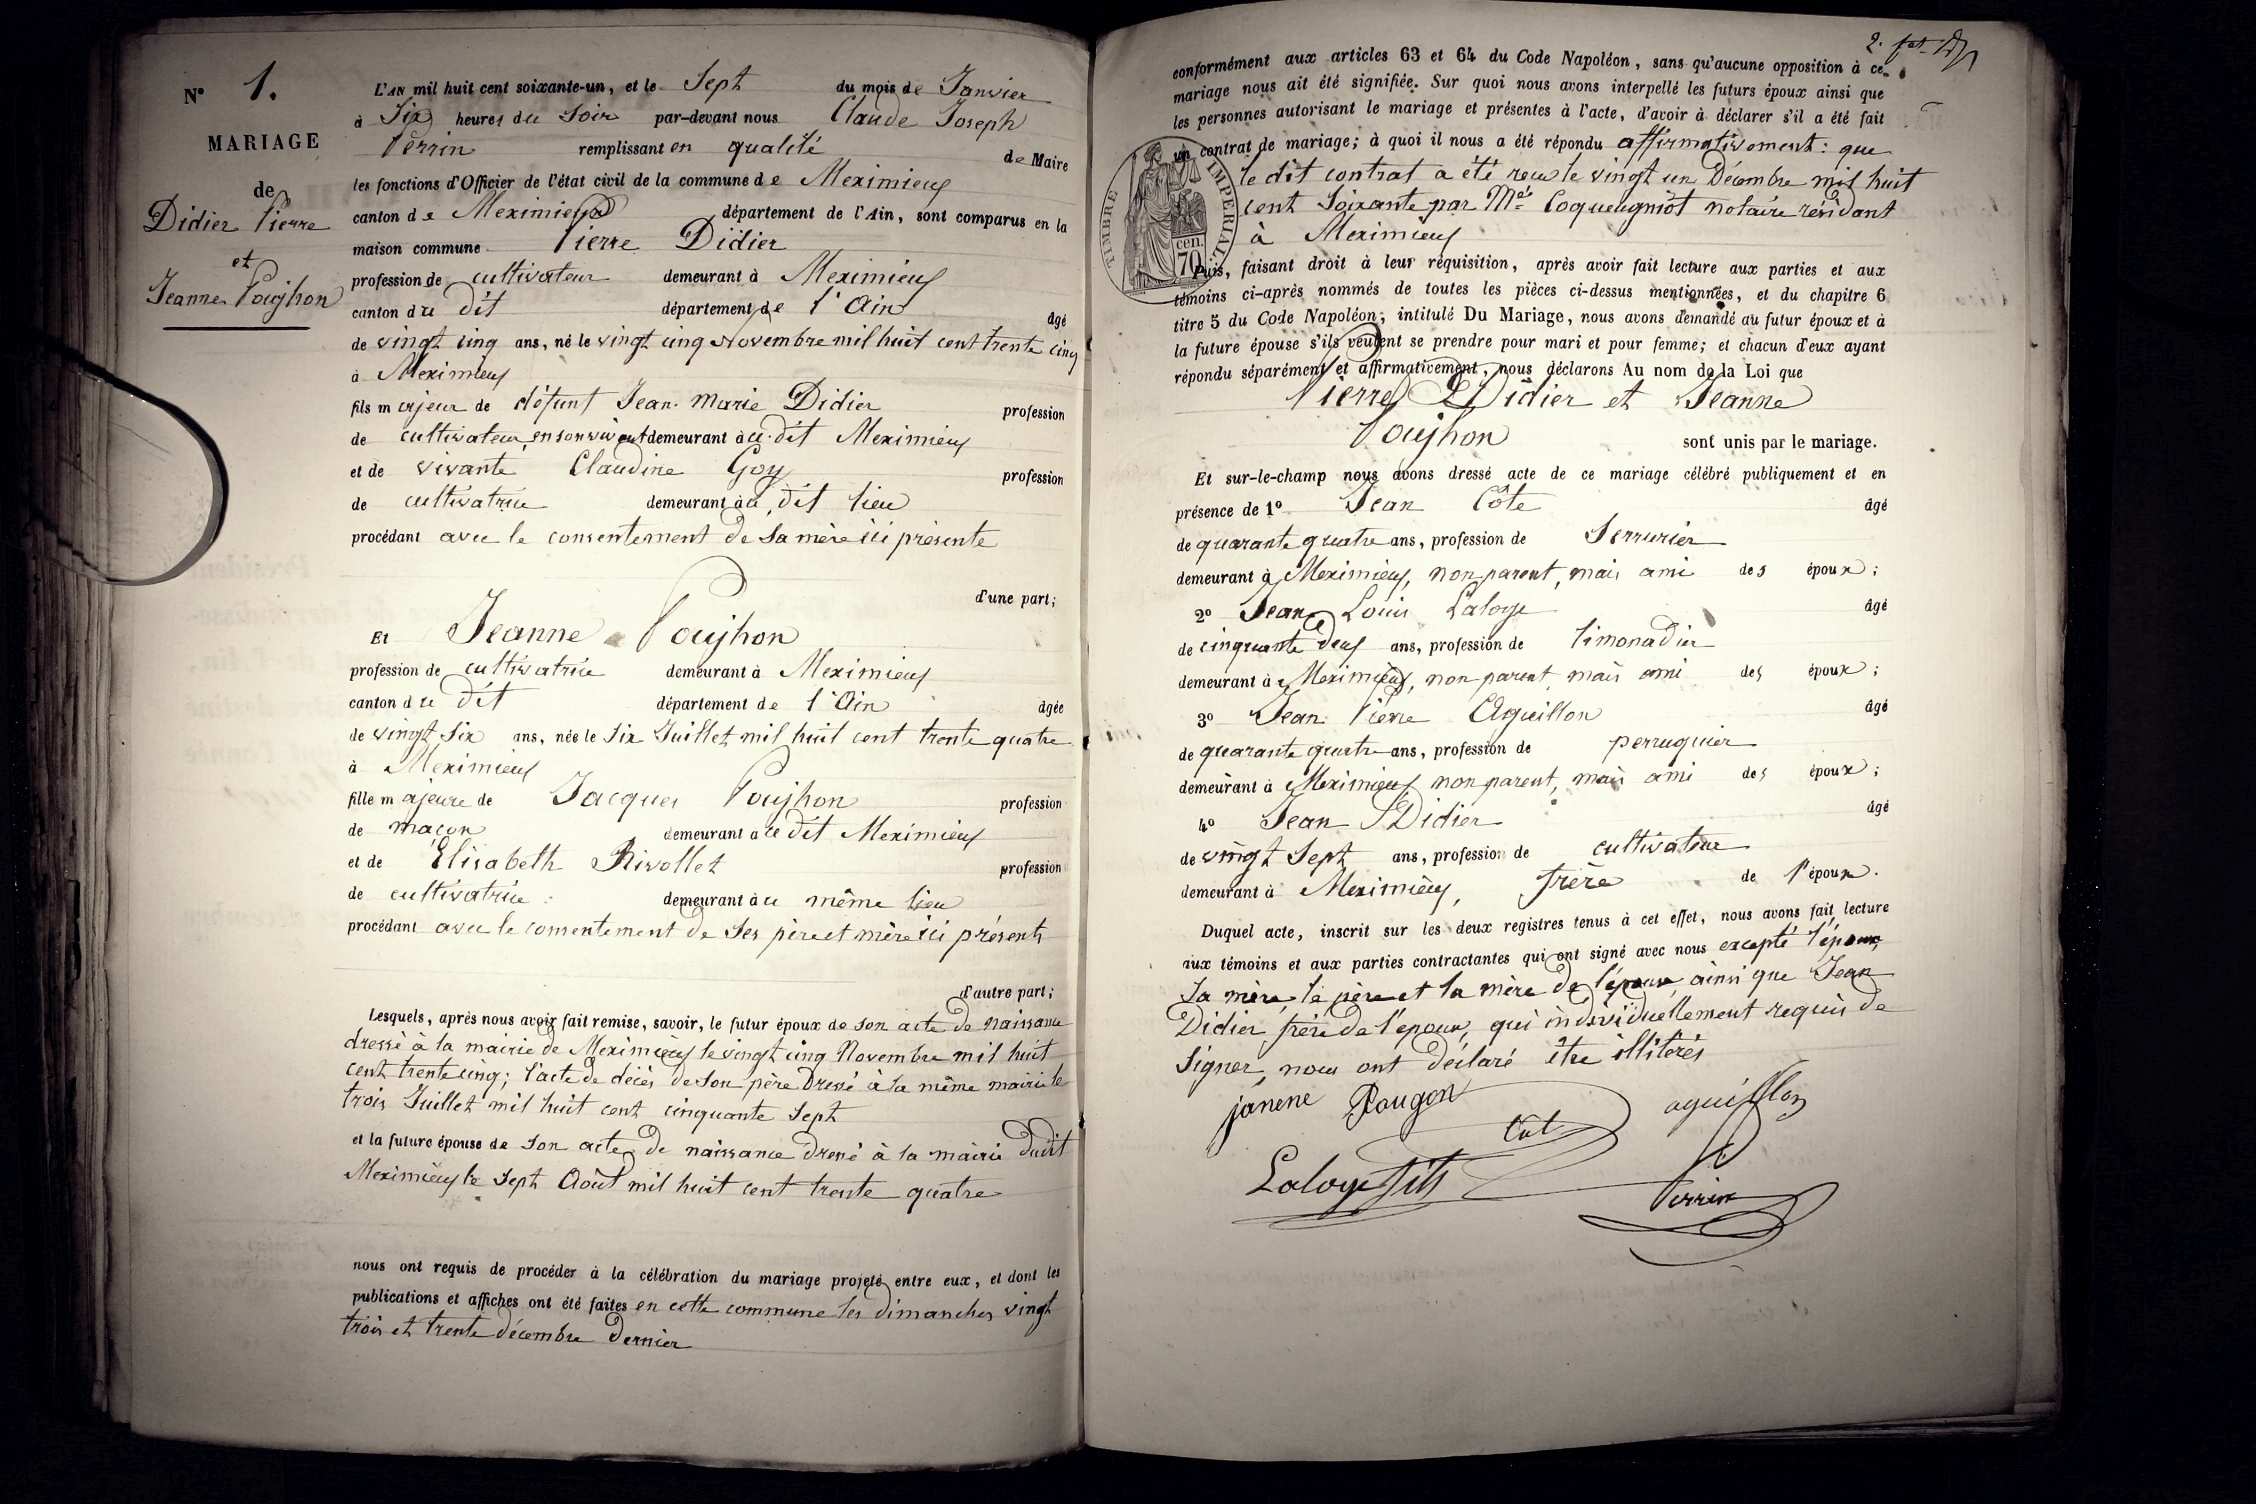 N° 1.
MARIAGE
de
Didier Pierre
et
Jeanne Poujhon
L'AN mil huit cent soixante-un, et le Sept du mois de Janvier
à Six heures du Soir par-devant nous Claude Joseph
Perrin remplissant en qualité de Maire
les fonctions d'Officier de l'état civil de la commune de Meximieux
canton de Meximieux département de l'Ain, sont comparus en la
maison commune Pierre Didier
profession de cultivateur demeurant à Meximieux
canton du dit département de l'Ain âgé
de vingt cinq ans, né le vingt cinq Novembre mil huit cent trente cinq
à Meximieux
fils majeur de défunt Jean Marie Didier profession
de cultivateur en son vivant demeurant au dit Meximieux
et de vivante Claudine Goy profession
de cultivatrice demeurant au dit lieu
procédant avec le consentement de sa mère ici présente
d'une part;
Et Jeanne Poujhon
profession de cultivatrice demeurant à Meximieux
canton du dit département de l'Ain âgée
de vingt six ans, née le six Juillet mil huit cent trente quatre
à Meximieux
fille majeure de Jacques Poujhon profession
de maçon demeurant au dit Meximieux
et de Elisabeth Rivollet profession
de cultivatrice demeurant au même lieu
procédant avec le consentement de ses père et mère ici présents
d'autre part;
Lesquels, après nous avoir fait remise, savoir, le futur époux de son acte de naissance
dressé à la mairie de Meximieux le vingt cinq Novembre mil huit
cent trente cinq; l'acte de décès de son père dressé à la même mairie le
trois Juillet mil huit cent cinquante sept
et la future épouse de son acte de naissance dressé à la mairie dudit
Meximieux le sept Août mil huit cent trente quatre
nous ont requis de procéder à la célébration du mariage projeté entre eux, et dont les
publications et affiches ont été faites en cette commune les dimanches vingt
trois et trente décembre dernier
2.
conformément aux articles 63 et 64 du Code Napoléon, sans qu'aucune opposition à ce
mariage nous ait été signifiée. Sur quoi nous avons interpellé les futurs époux ainsi que
les personnes autorisant le mariage et présentes à l'acte, d'avoir à déclarer s'il a été fait
un contrat de mariage; à quoi il nous a été répondu affirmativement: que
le dit contrat a été reçu le vingt un Décembre mil huit
cent soixante par Me Coqueugniot notaire résidant
à Meximieux
TIMBRE IMPERIAL
70 cen.
Puis, faisant droit à leur réquisition, après avoir fait lecture aux parties et aux
témoins ci-après nommés de toutes les pièces ci-dessus mentionnées, et du chapitre 6
titre 5 du Code Napoléon, intitulé Du Mariage, nous avons demandé au futur époux et à
la future épouse s'ils veulent se prendre pour mari et pour femme; et chacun d'eux ayant
répondu séparément et affirmativement, nous déclarons Au nom de la Loi que
Pierre Didier et Jeanne
Poujhon sont unis par le mariage.
Et sur-le-champ nous avons dressé acte de ce mariage célébré publiquement et en
présence de 1° Jean Côte âgé
de quarante quatre ans, profession de Serrurier
demeurant à Meximieux, non parent, mais ami des époux;
2° Jean Louis Laloye âgé
de cinquante deux ans, profession de limonadier
demeurant à Meximieux, non parent mais ami des époux;
3° Jean Pierre Aguillon âgé
de quarante quatre ans, profession de perruquier
demeurant à Meximieux non parent, mais ami des époux;
4° Jean Didier âgé
de vingt sept ans, profession de cultivateur
demeurant à Meximieux, frère de l'époux.
Duquel acte, inscrit sur les deux registres tenus à cet effet, nous avons fait lecture
aux témoins et aux parties contractantes qui ont signé avec nous excepté l'époux,
sa mère, le père et la mère de l'épouse, ainsi que Jean
Didier frère de l'époux, qui individuellement requis de
signer, nous ont déclaré être illitérés
janene Pougon
aguillon
Cot
Laloye fils
Perrin